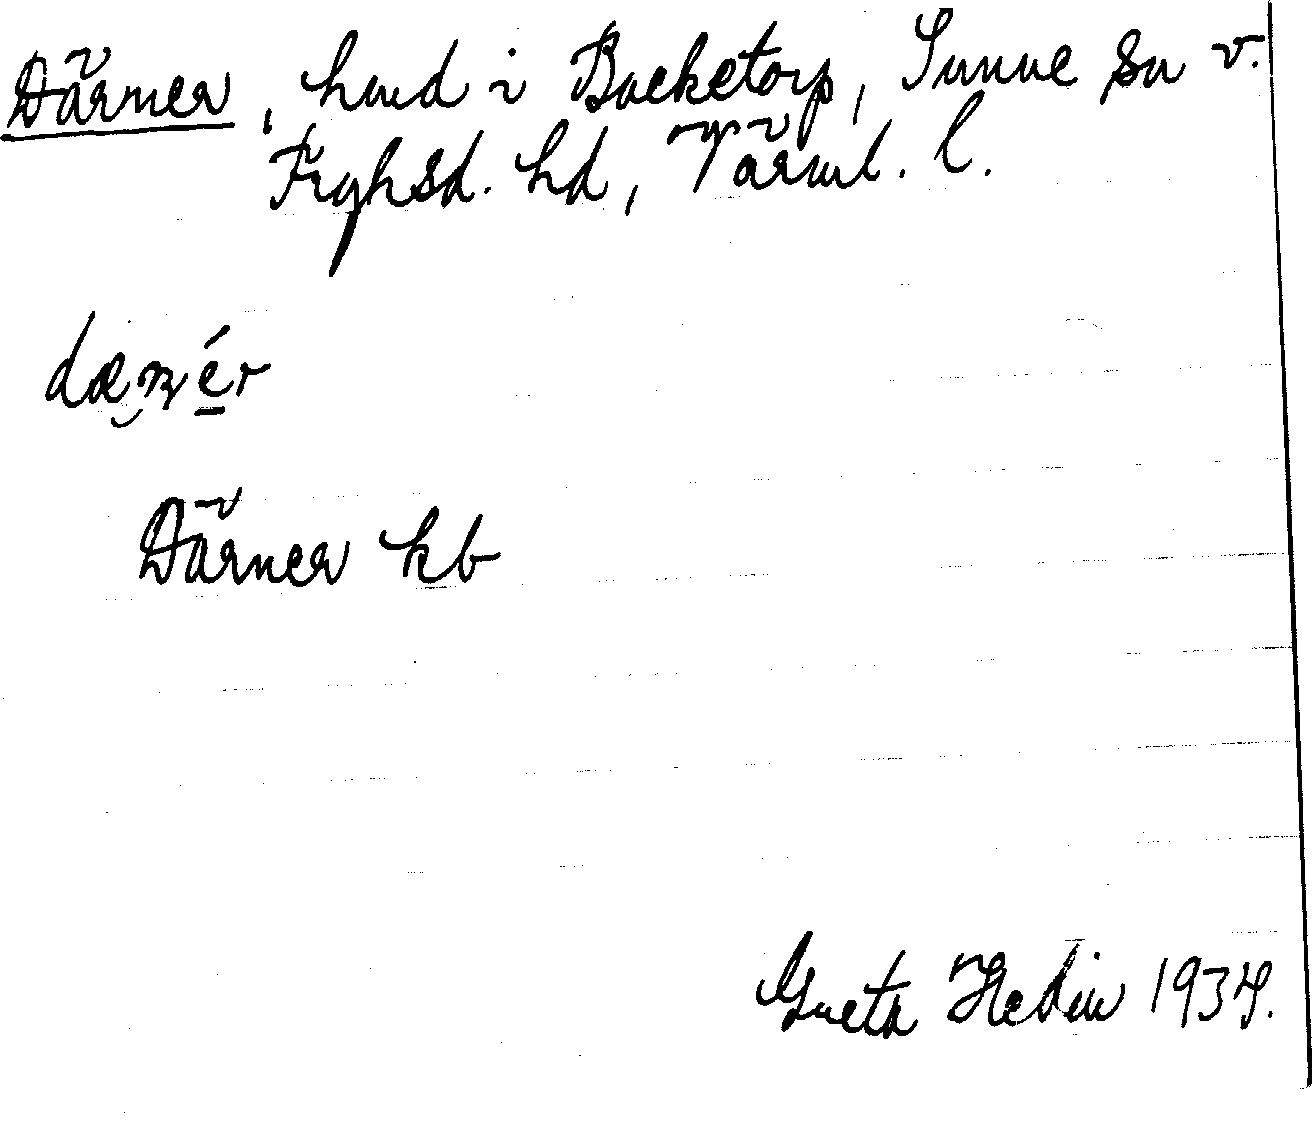 Därner, hmd i Backetorp, Sunne sn v.
Fryksd. hd, Värml. l.
Därner kb
Greta Hedin 1934.